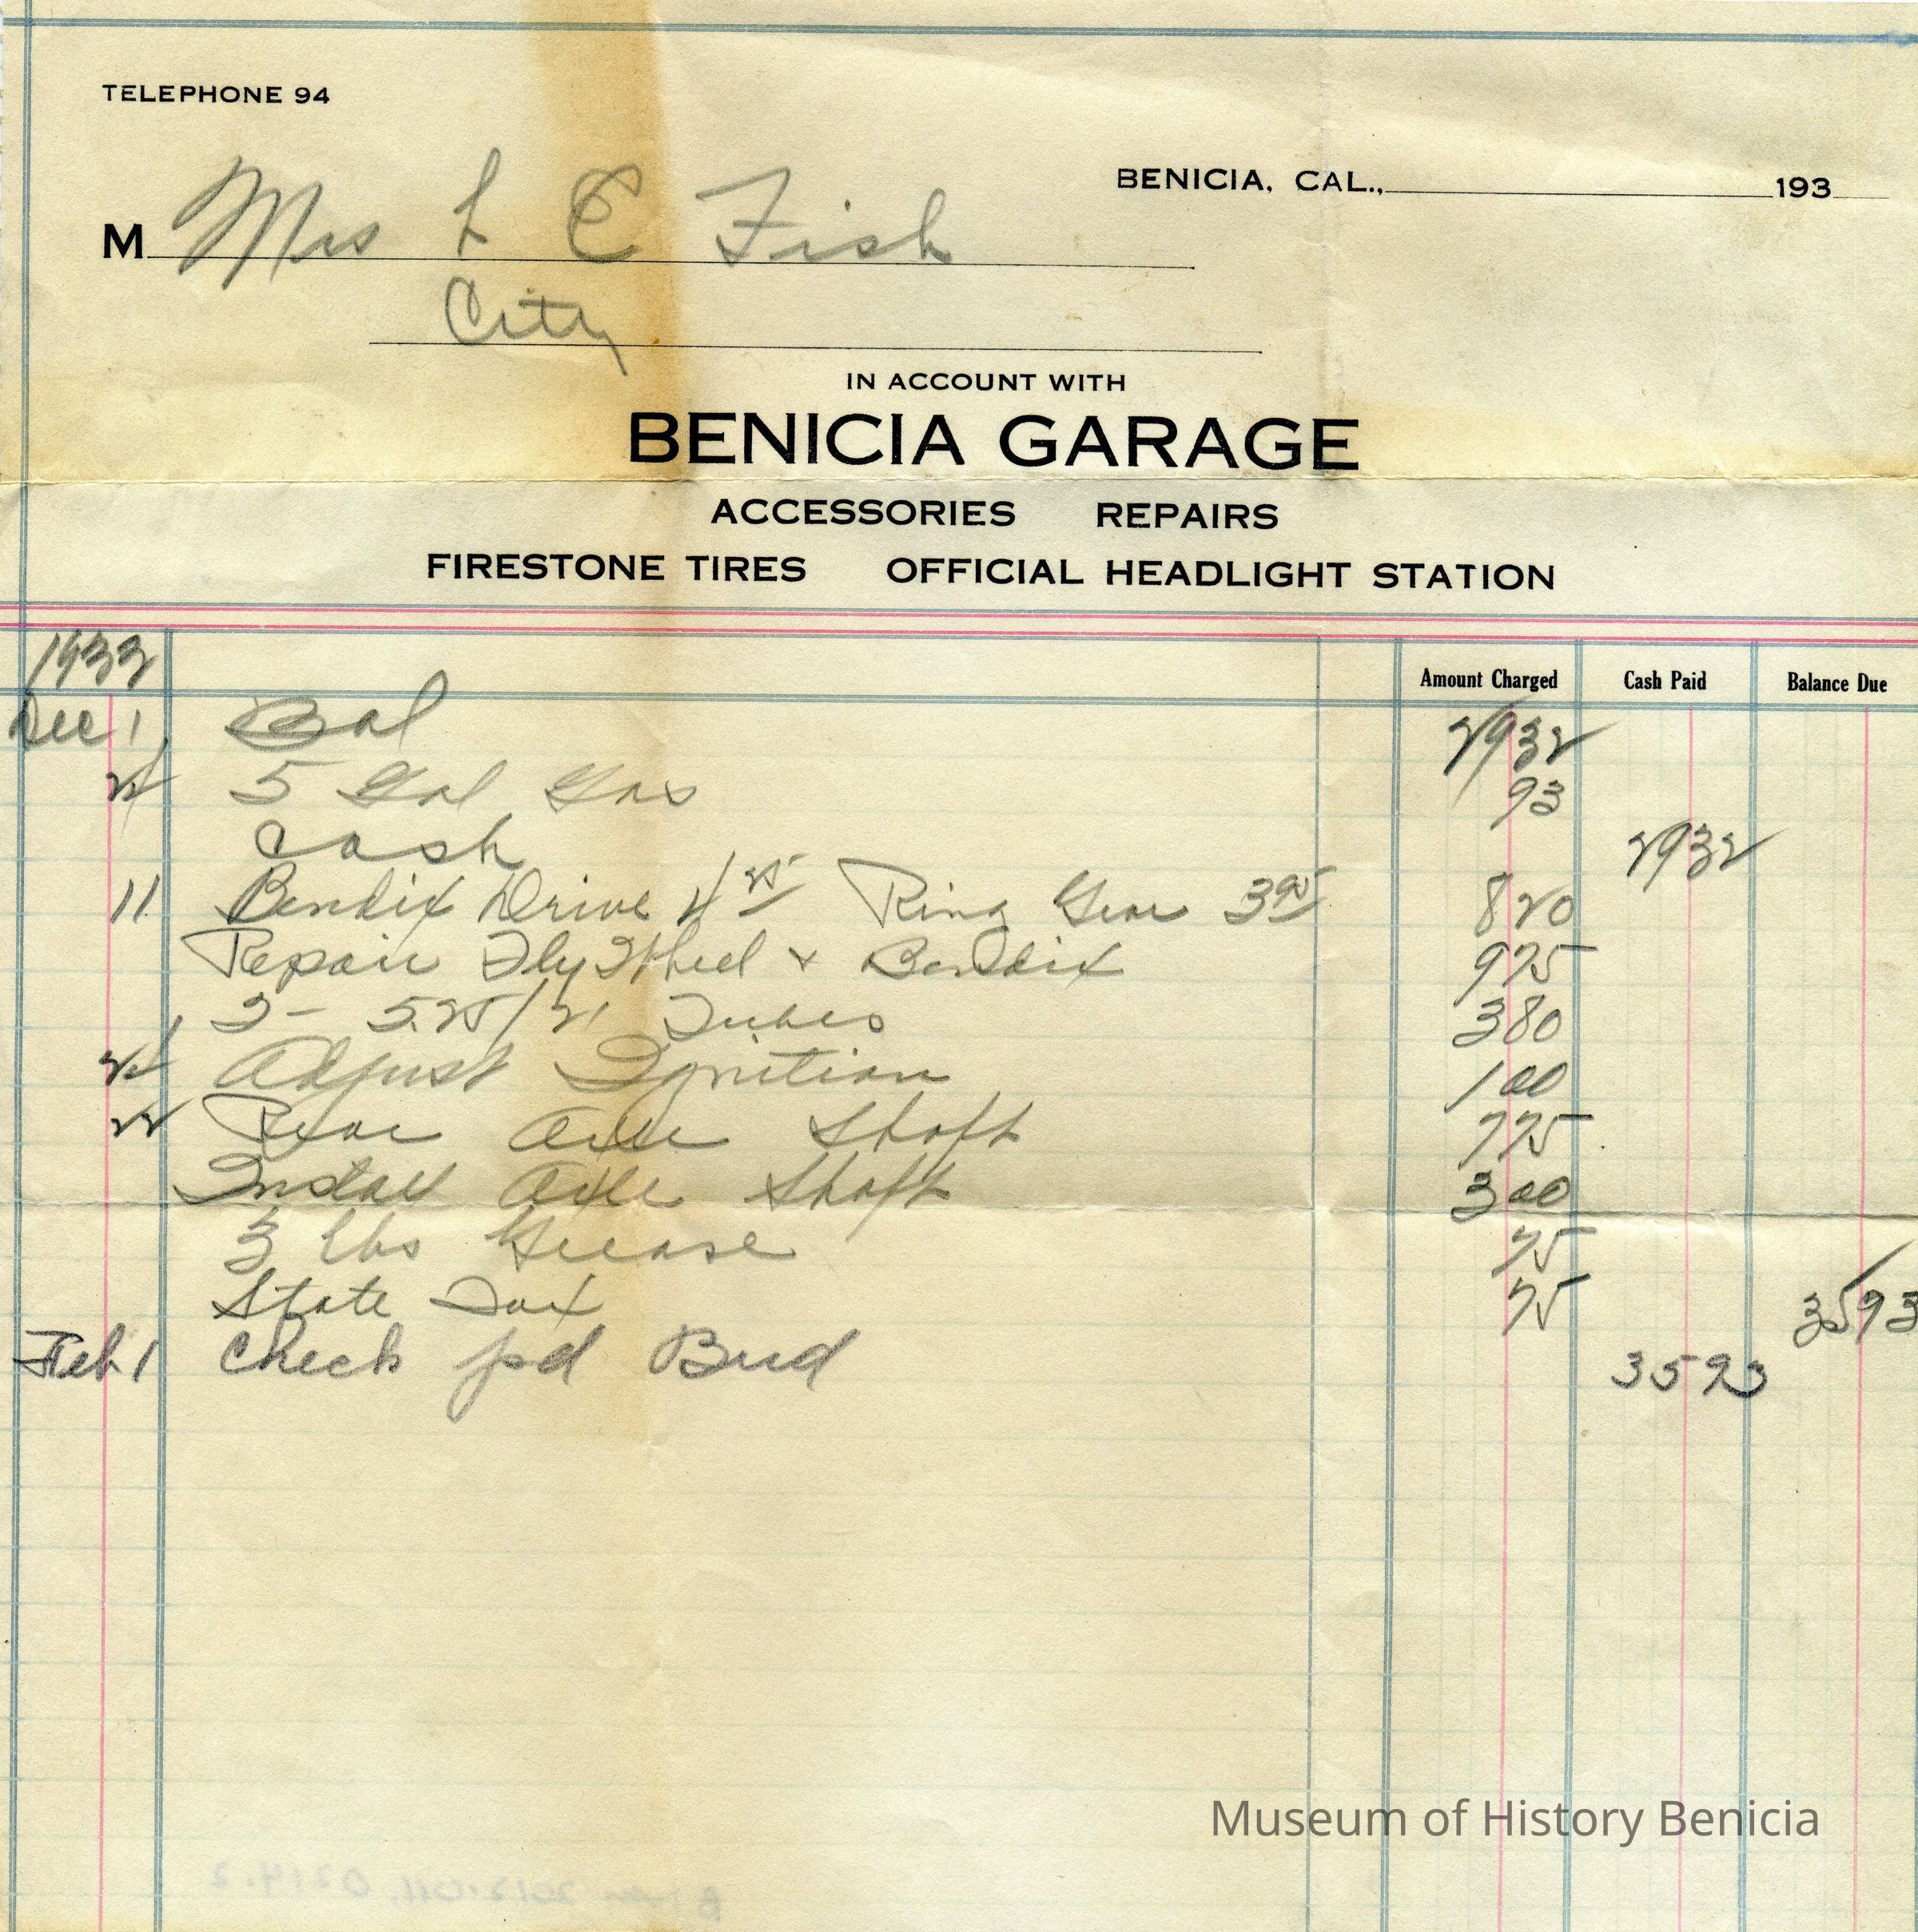 TELEPHONE 94
BENICIA, CAL., 193
M Mrs L E Fish
City
IN ACCOUNT WITH
BENICIA GARAGE
ACCESSORIES REPAIRS
FIRESTONE TIRES OFFICIAL HEADLIGHT STATION
1933 Amount Charged Cash Paid Balance Due
Dec 1 Bal 2932
5 Gal Gas 93
Cash 2932
11 Bendix Drive 4 25 Ring Gear 3 95 820
Repair Fly Wheel & Bendix 975
2 - 5.25/21 Tubes 380
Adjust Ignition 100
22 Rear Axle Shaft 775
Install Axle Shaft 300
3 lbs Grease 75
State Tax 75 3593
Feb 1 Check pd Bud 3593
Museum of History Benicia